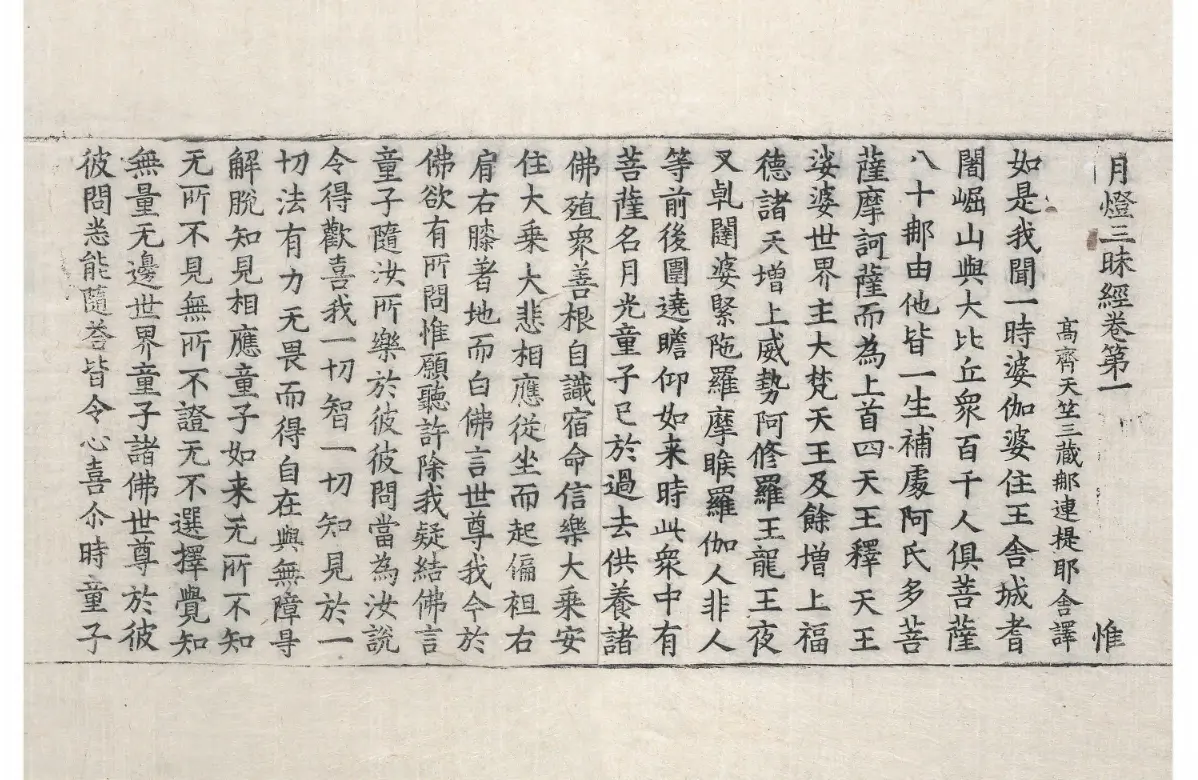 月燈三昧經卷第一 惟
高齊天竺三藏那連提耶舍譯
如是我聞一時婆伽婆住王舍城耆
闍崛山與大比丘衆百千人俱菩薩
八十那由他皆一生補處阿氏多菩
薩摩訶薩而為上首四天王釋天王
娑婆世界主大梵天王及餘增上福
德諸天增上威勢阿修羅王龍王夜
叉乹闥婆緊陁羅摩睺羅伽人非人
等前後圍遶瞻仰如来時此衆中有
菩薩名月光童子已於過去供養諸
佛殖衆善根自識宿命信樂大乗安
住大乗大悲相應從坐而起偏袒右
肩右膝著地而白佛言世尊我今於
佛欲有所問惟願聽許除我疑結佛言
童子隨汝所樂於彼彼問當為汝說
令得歡喜我一切智一切知見於一
切法有力无畏而得自在與無障㝵
解脫知見相應童子如来无所不知
无所不見無所不證无不選擇覺知
無量无邊世界童子諸佛世尊於彼
彼問悉能隨荅皆令心喜尒時童子